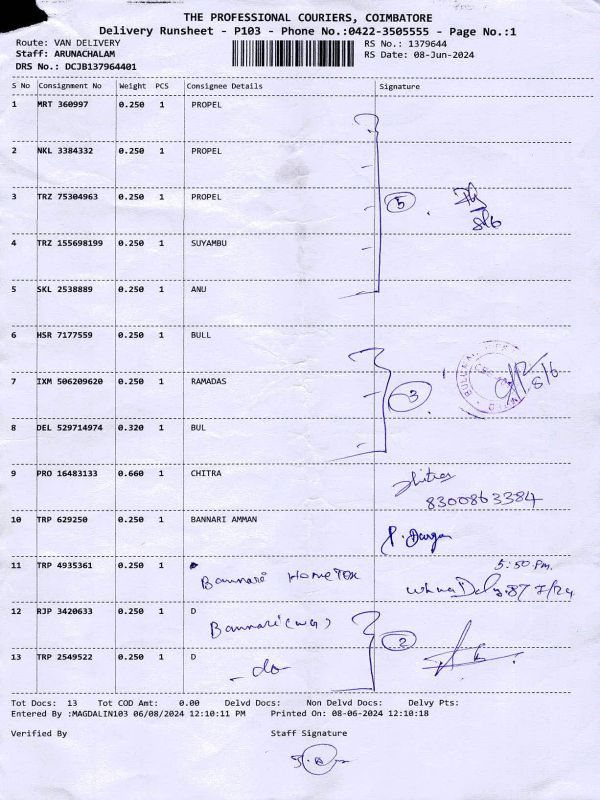 THE PROFESSIONAL COURIERS, COIMBATORE
Delivery Runsheet - P103 - Phone No.:0422-3505555 - Page No.:1
Route: VAN DELIVERY RS No.: 1379644
Staff: ARUNACHALAM RS Date: 08-Jun-2024
DRS No.: DCJB137964401
S No Consignment No Weight PCS Consignee Details Signature
1 MRT 360997 0.250 1 PROPEL
2 NKL 3384332 0.250 1 PROPEL
3 TRZ 75304963 0.250 1 PROPEL 5
8/6
4 TRZ 155698199 0.250 1 SUYAMBU
5 SKL 2538889 0.250 1 ANU
6 HSR 7177559 0.250 1 BULL
7 IXM 506209620 0.250 1 RAMADAS 3 8/6
8 DEL 529714974 0.320 1 BUL
9 PRO 16483133 0.660 1 CHITRA Chitra
8300863384
10 TRP 629250 0.250 1 BANNARI AMMAN
11 TRP 4935361 0.250 1 5:50 Pm.
Bannari Home Tex
12 RJP 3420633 0.250 1 D
Bannari 2
13 TRP 2549522 0.250 1 D
- do -
Tot Docs: 13 Tot COD Amt: 0.00 Delvd Docs: Non Delvd Docs: Delvy Pts:
Entered By :MAGDALIN103 06/08/2024 12:10:11 PM Printed On: 08-06-2024 12:10:18
Verified By Staff Signature